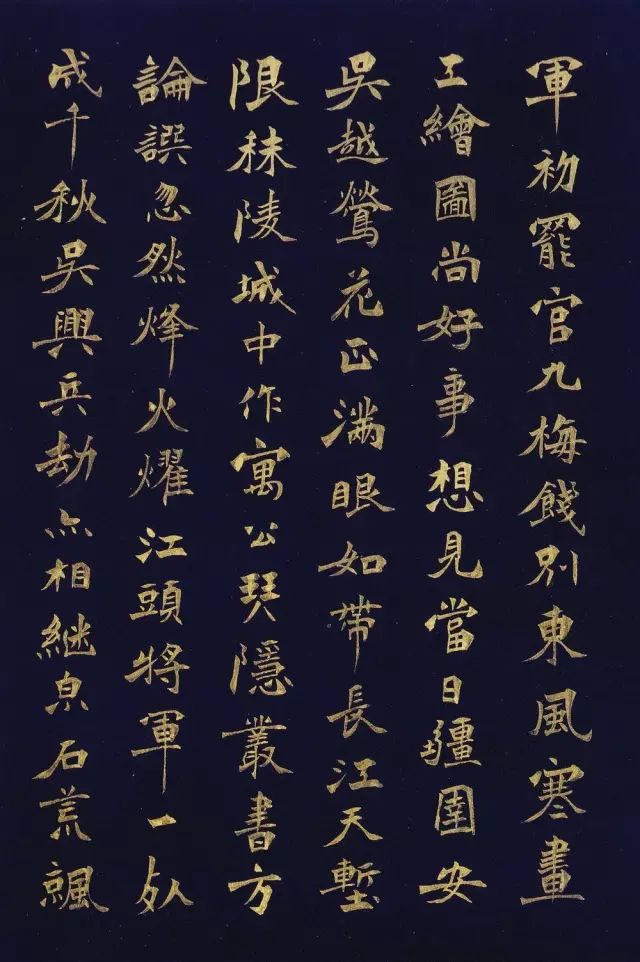 軍初罷官九梅餞別東風寒畫
工繪圖尚好事想見當日疆圉安
吳越鶯花正滿眼如帶長江天塹
限秣陵城中作寓公琴隱叢書方
論譔忽然烽火耀江頭將軍一死
成千秋吳興兵劫亦相繼泉石荒飊